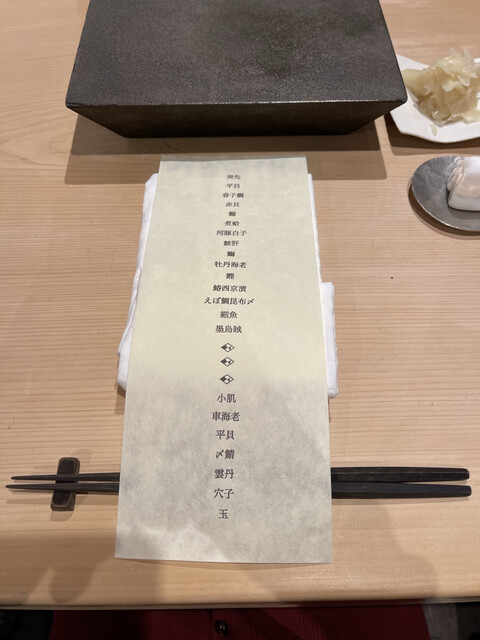 突先
平貝
春子鯛
赤貝
煮蛤
河豚白子
鮟肝
牡丹海老
鰹
鰆西京漬
えぼ鯛昆布〆
細魚
墨烏賊
小肌
車海老
平貝
〆鯖
雲丹
穴子
玉